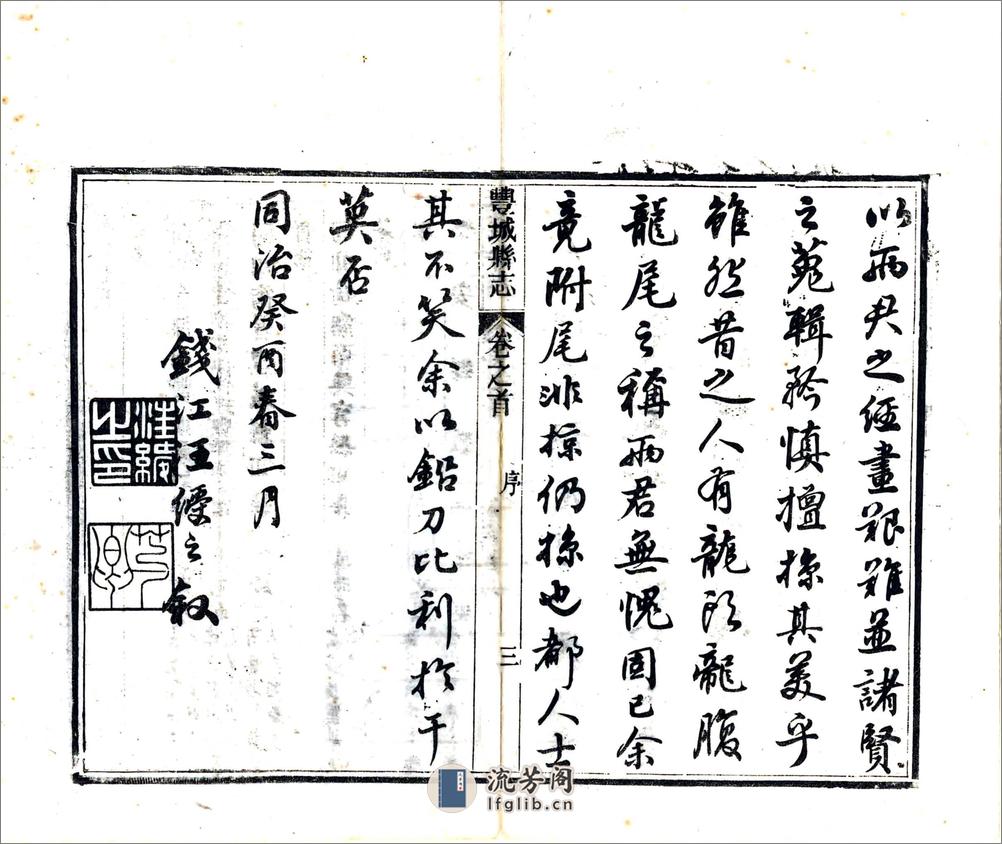 以兩尹之經畫艱難並諸賢
之蒐輯矜慎擅㨿其美乎
雖然昔之人有龍頭龍腹
龍尾之稱兩君無愧固已余
竟附尾非掠仍掠也都人士
豐城縣志 卷之首 序 三
其不笑余以鉛刀比利於干
英否
同治癸酉春三月
錢江王之敘
之印
流芳阁
lfglib.cn